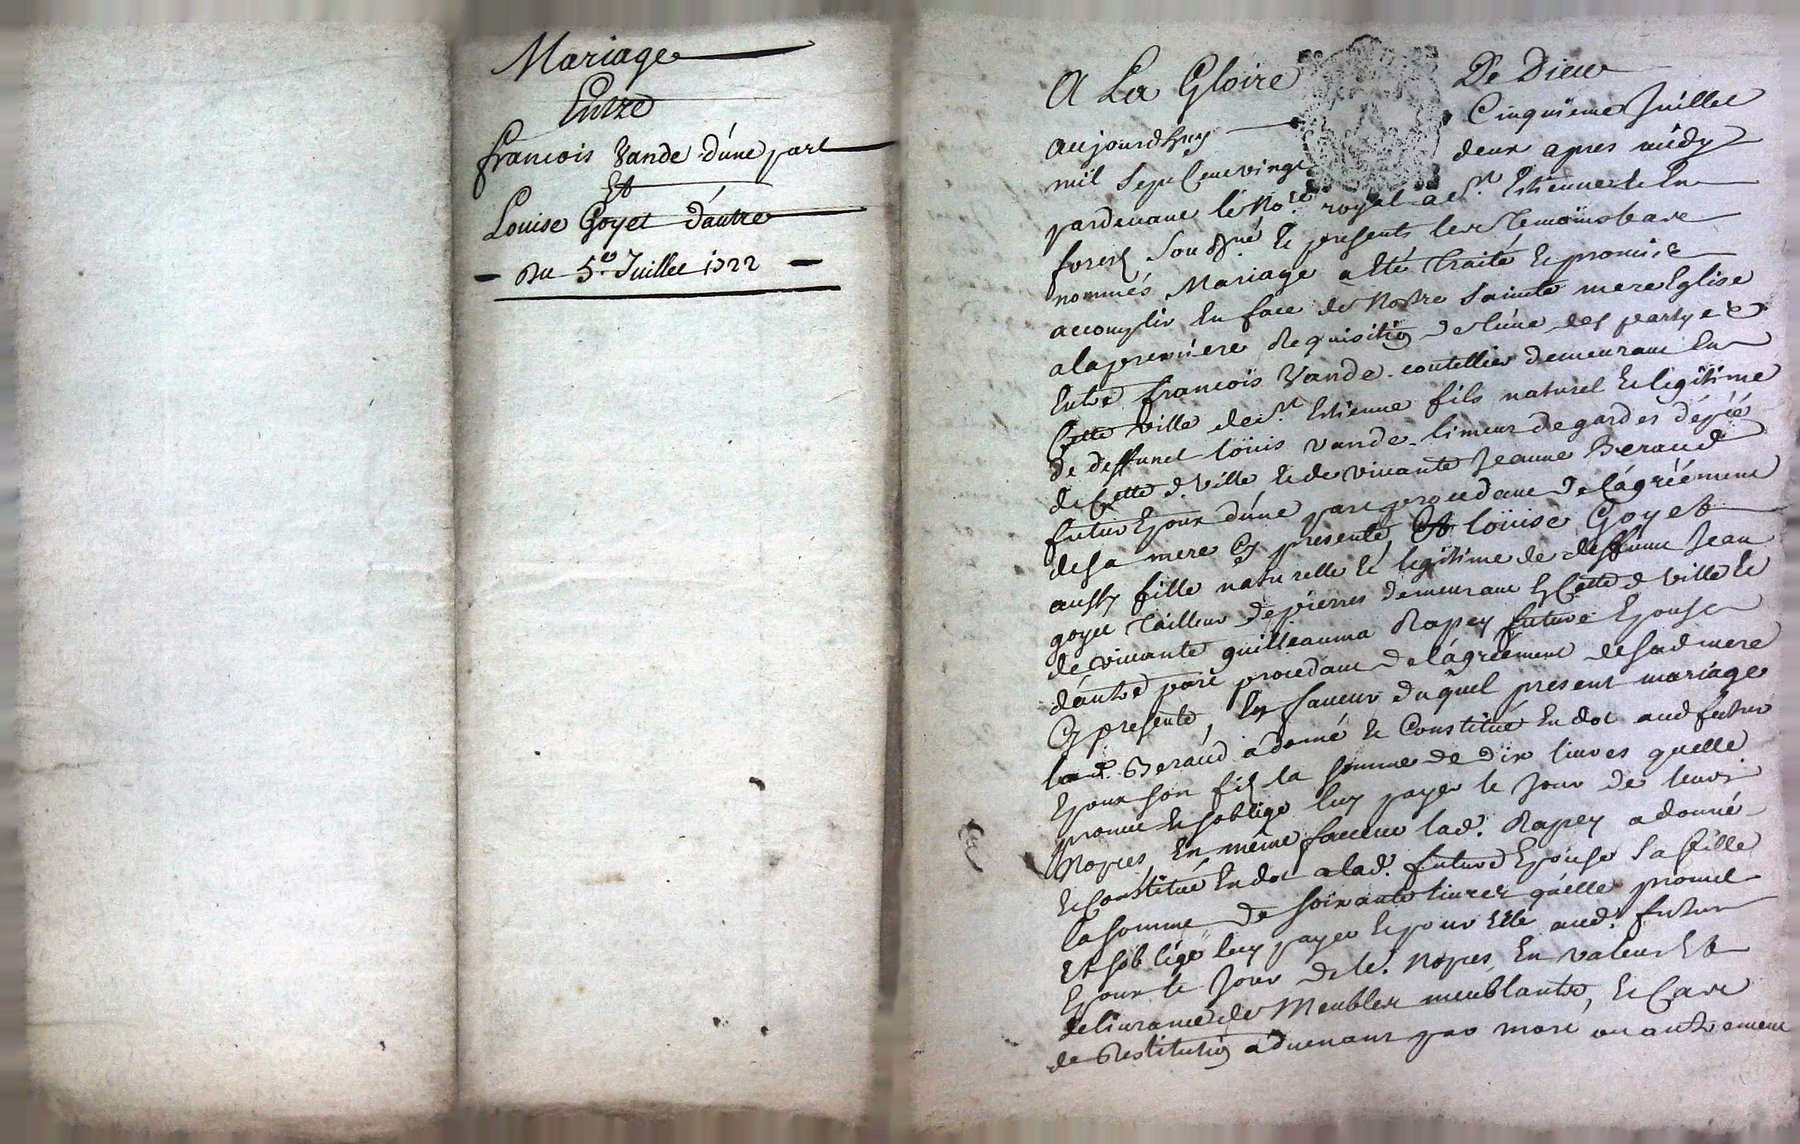 Mariage
Entre
francois Vande d'une part
Et
Louise Goyet d'autre
Du 5e. Juillet 1722
A La Gloire De Dieu
aujourdhuy Cinquieme Juillet
mil sept Cent vingt deux apres midy
pardevant le No.re royal a St. Estienne de En
forest Sousigné Et presents les temoins bas
nommés Mariage a Eté traité Et promis
accomplir En face de Nostre Sainte mere Eglise
a la premiere Requisition de l'une des partyes
Entre francois Vande coutellier demeurant En
Cette ville de St. Estienne fils naturel Et legitime
de deffunct loüis vande limeur de gardes d'épée
de Cette d. ville Et de vivante Jeanne Beraud
futur Epoux d'une part procedant De l'agréement
de sa mere Cy presente, Et loüise Goyet
aussy fille naturelle Et legitime de deffunt Jean
goyet tailleur de pierres demeurant En Cette d ville Et
de vivante guilleauma Rapey future Epouse
d'autre part procedant De l'agréement de sad mere
Cy presente, En faveur duquel present mariage
lad. Beraud a donné Et Constitué En dot aud futur
Epoux son fils la somme de dix livres quelle
promet Et soblige luy payer le Jour de leurs
Nopces, En même faveur lad. Rapey a donné
Et Constitué En dot a lad. future Epouse sa fille
la somme de soixante livres qu'elle promet
Et soblige luy payer Et pour Elle aud. futur
Epoux le Jour de Nopces, En valeur Et
delivrance de Meubles meublants, Et Cas
de Restitution advenant par mort ou autrement